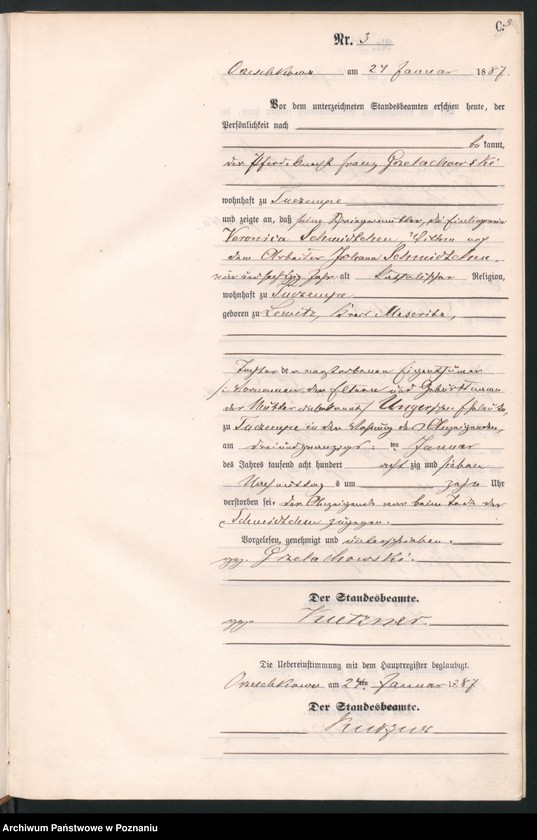 C. 3
Nr. 3
Orzeschkowo am 24 Januar 1887.
Vor dem unterzeichneten Standesbeamten erschien heute, der
Persönlichkeit nach
be kannt,
der Pferdeknecht Franz Grzelachowski
wohnhaft zu Tuczempe
und zeigte an, daß seine Schwiegermutter, die
Veronica Schmidtchen, Wittwe nach
dem Arbeiter Johann Schmidtchen,
sechzig Jahr alt katholischer Religion,
wohnhaft zu Tuczempe
geboren zu Lewitz, Kreis Meseritz,
Tochter der verstorbenen Eigenthümer
/: Vornamen der Eltern und Geburtsname
der Mutter unbekannt / Unger'schen Eheleute,
zu Tuczempe in der Wohnung des Anzeigenden,
am dreiundzwanzigsten Januar
des Jahres tausend acht hundert acht zig und sieben
Nachmittags um zehn Uhr
verstorben sei. Der Anzeigende war beim Tode der
Schmidtchen zugegen.
Vorgelesen, genehmigt und unterschrieben.
gez. Grzelachowski.
Der Standesbeamte.
gez. Kutzner.
Die Uebereinstimmung mit dem Hauptregister beglaubigt.
Orzeschkowo am 24ten Januar 1887
Der Standesbeamte.
Kutzner
Archiwum Państwowe w Poznaniu